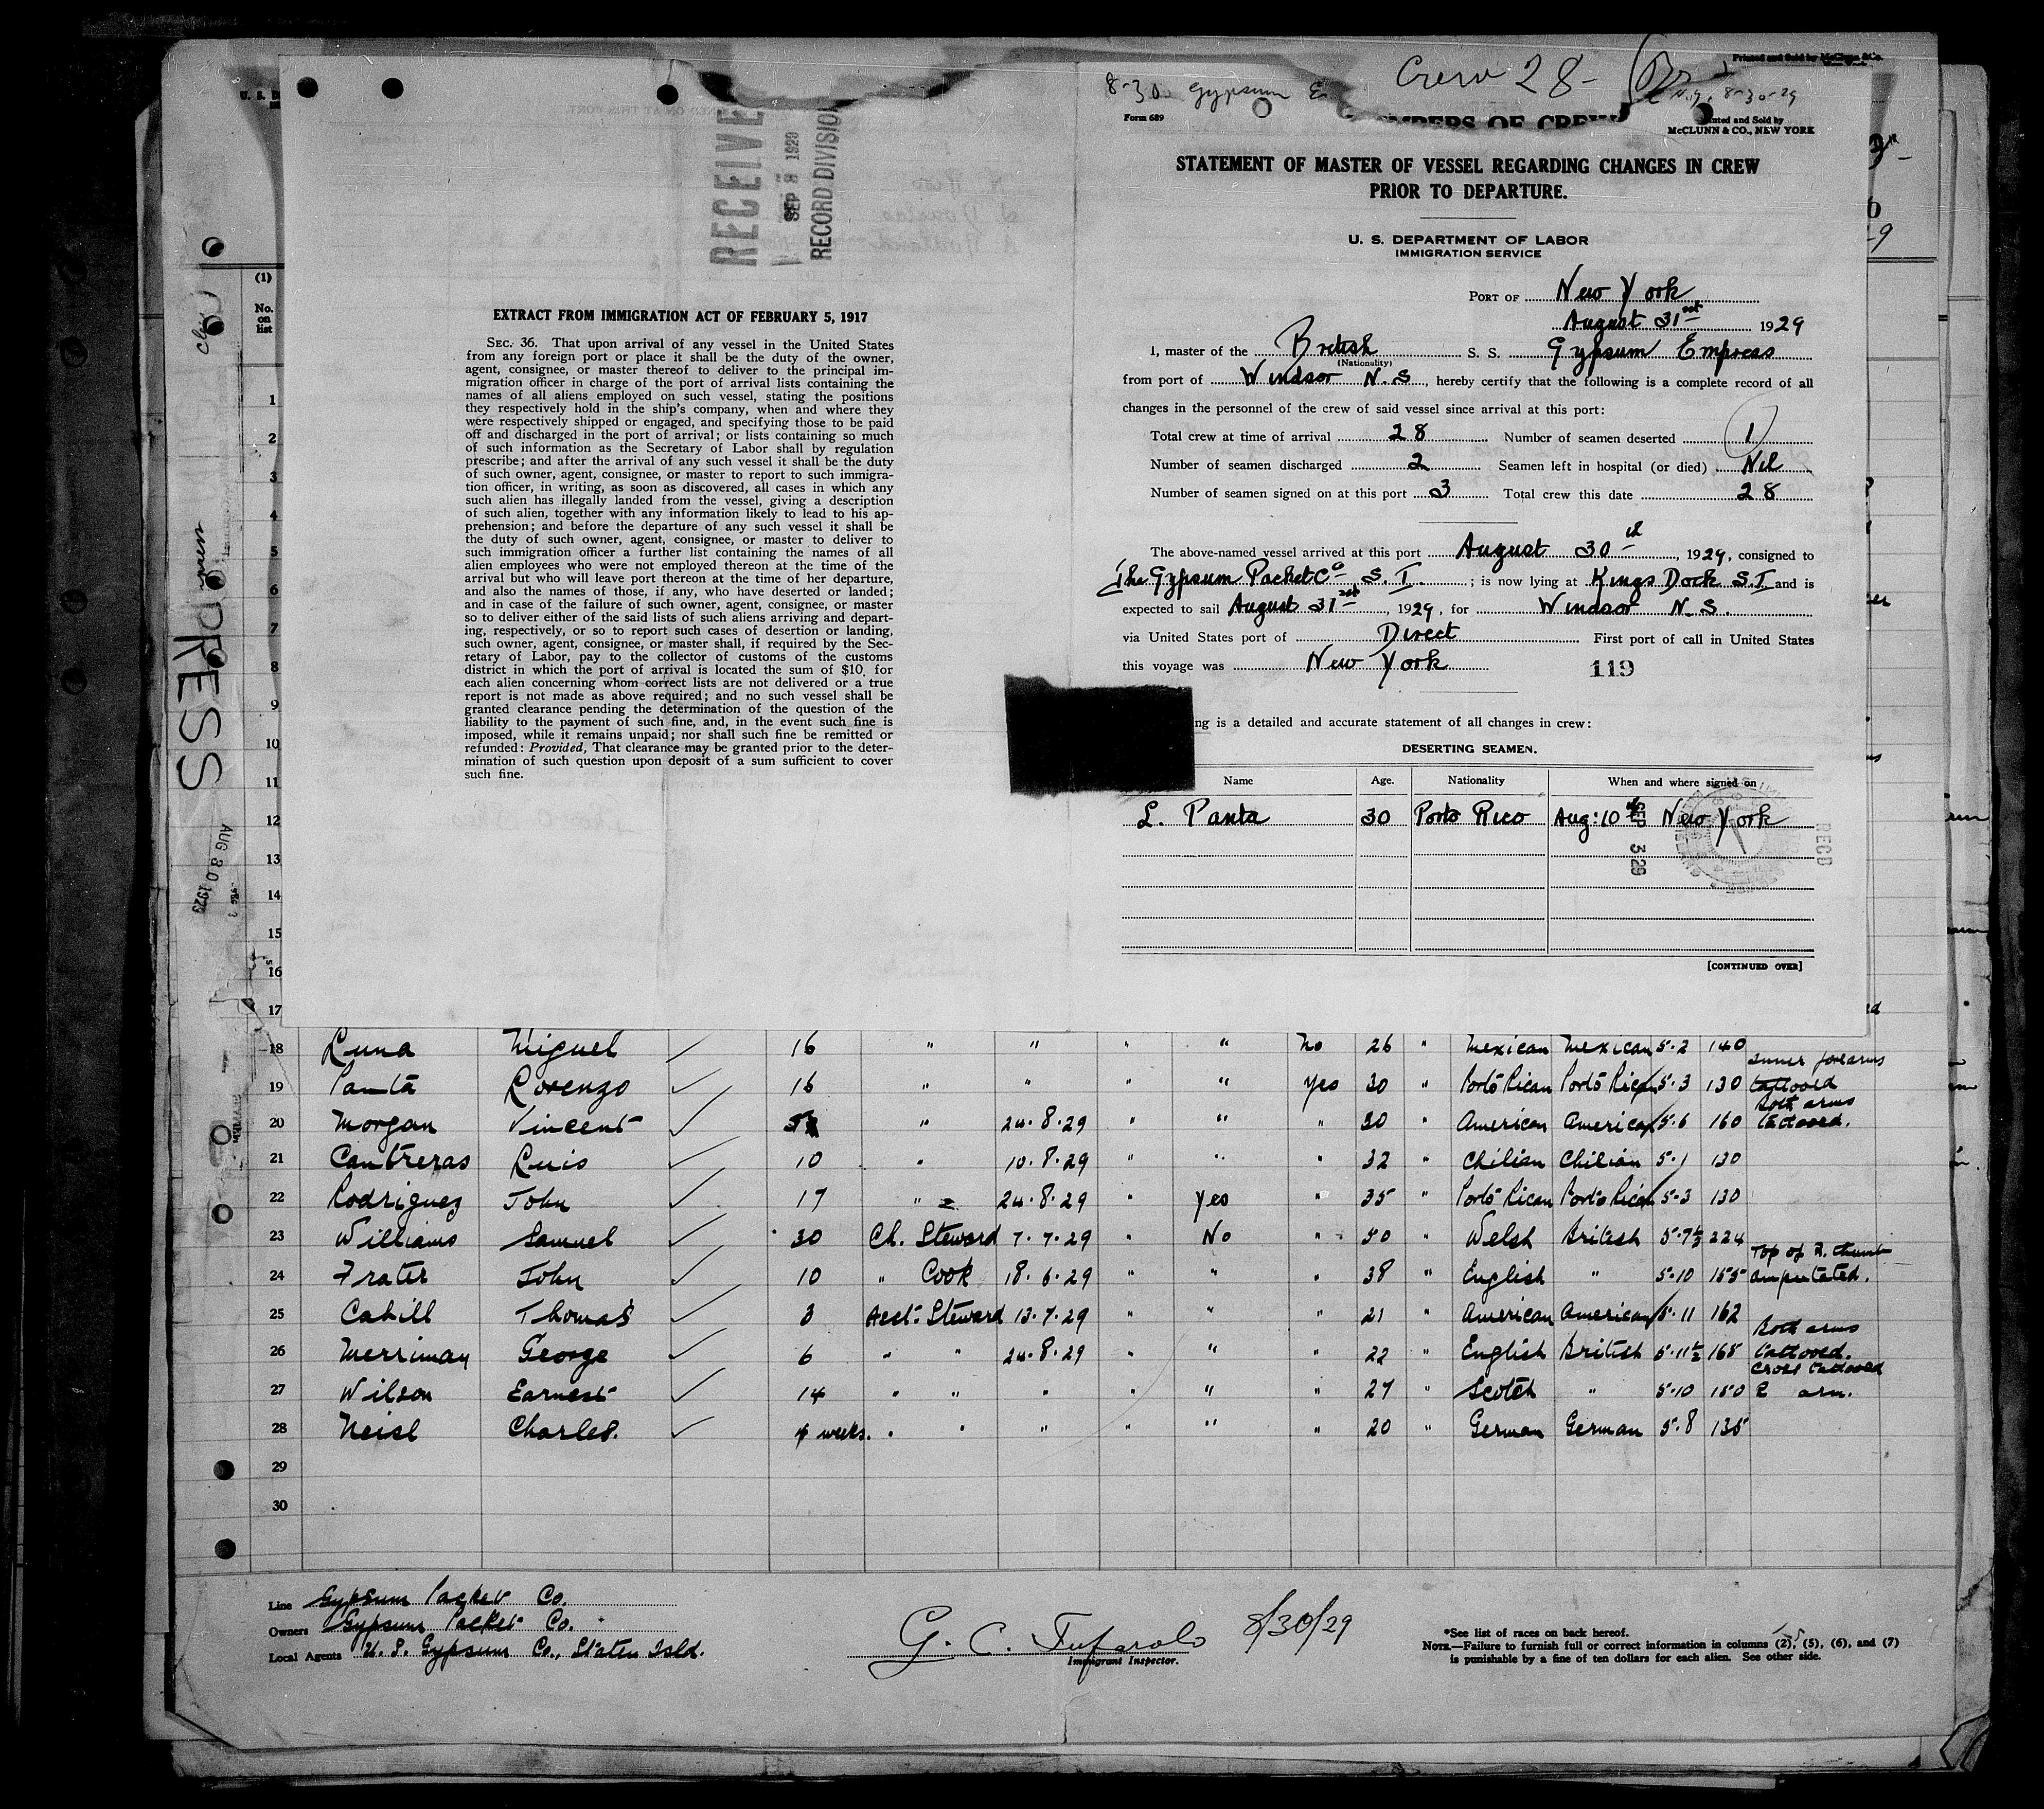 Printed and Sold by McClunn & Co.
Crew 28-
8-30 Gypsum E
N.Y. 8-30-29
Form 689
MEMBERS OF CREW
Printed and Sold by
McCLUNN & CO., NEW YORK
STATEMENT OF MASTER OF VESSEL REGARDING CHANGES IN CREW
PRIOR TO DEPARTURE.
U. S. DEPARTMENT OF LABOR
IMMIGRATION SERVICE
PORT OF New York
August 31st 1929
I, master of the British S. S. Gypsum Empress
(Nationality)
from port of Windsor N.S, hereby certify that the following is a complete record of all
changes in the personnel of the crew of said vessel since arrival at this port:
Total crew at time of arrival 28 Number of seamen deserted 1
Number of seamen discharged 2 Seamen left in hospital (or died) Nil
Number of seamen signed on at this port 3 Total crew this date 28
The above-named vessel arrived at this port August 30th, 1929, consigned to
The Gypsum Packet Co S.I.; is now lying at Kings Dock S.I and is
expected to sail August 31st, 1929, for Windsor N.S.
via United States port of Direct First port of call in United States
this voyage was New York 119
ng is a detailed and accurate statement of all changes in crew:
DESERTING SEAMEN.
Name Age. Nationality When and where signed on
L. Panta 30 Porto Rico Aug: 10th New York
SEP 3 29
RECD
[CONTINUED OVER]
RECEIVE
SEP 3 1929
RECORD DIVISION
EXTRACT FROM IMMIGRATION ACT OF FEBRUARY 5, 1917
SEC. 36. That upon arrival of any vessel in the United States
from any foreign port or place it shall be the duty of the owner,
agent, consignee, or master thereof to deliver to the principal im-
migration officer in charge of the port of arrival lists containing the
names of all aliens employed on such vessel, stating the positions
they respectively hold in the ship's company, when and where they
were respectively shipped or engaged, and specifying those to be paid
off and discharged in the port of arrival; or lists containing so much
of such information as the Secretary of Labor shall by regulation
prescribe; and after the arrival of any such vessel it shall be the duty
of such owner, agent, consignee, or master to report to such immigra-
tion officer, in writing, as soon as discovered, all cases in which any
such alien has illegally landed from the vessel, giving a description
of such alien, together with any information likely to lead to his ap-
prehension; and before the departure of any such vessel it shall be
the duty of such owner, agent, consignee, or master to deliver to
such immigration officer a further list containing the names of all
alien employees who were not employed thereon at the time of the
arrival but who will leave port thereon at the time of her departure,
and also the names of those, if any, who have deserted or landed;
and in case of the failure of such owner, agent, consignee, or master
so to deliver either of the said lists of such aliens arriving and depart-
ing, respectively, or so to report such cases of desertion or landing,
such owner, agent, consignee, or master shall, if required by the Sec-
retary of Labor, pay to the collector of customs of the customs
district in which the port of arrival is located the sum of $10 for
each alien concerning whom correct lists are not delivered or a true
report is not made as above required; and no such vessel shall be
granted clearance pending the determination of the question of the
liability to the payment of such fine, and, in the event such fine is
imposed, while it remains unpaid; nor shall such fine be remitted or
refunded: Provided, That clearance may be granted prior to the deter-
mination of such question upon deposit of a sum sufficient to cover
such fine.
(1)
No.
on
list
1
2
3
4
5
6
7
8
9
10
11
12
13
14
15
16
17
PRESS
AUG 30 1929
18 Luna Miguel 16 " " " " No 26 " Mexican Mexican 5-2 140
19 Panta Lorenzo 16 " " " " Yes 30 " Porto Rican Porto Rican 5-3 130 inner forearms tattooed
20 Morgan Vincent " 24-8-29 " " " 30 " American American 5-6 160 Both arms tattooed.
21 Contreras Luis 10 " 10-8-29 " " " 32 " Chilian Chilian 5-1 130
22 Rodriguez John 17 " 24-8-29 " Yes " 35 " Porto Rican Porto Rican 5-3 130
23 Williams Samuel 30 Ch. Steward 7-7-29 " No " 50 " Welsh British 5-7½ 224
24 Frater John 10 " Cook 18-6-29 " " " 38 " English " 5-10 155 Top of R. thumb amputated.
25 Cahill Thomas 3 Asst. Steward 13-7-29 " " " 21 " American American 5-11 162
26 Merriman George 6 " " 24-8-29 " " " 22 " English British 5-11½ 168 Both arms tattooed.
27 Wilson Earnest 14 " " " " " " 27 " Scotch " 5-10 150 Cross tattooed R arm.
28 Neisl Charles. 4 weeks. " " " " " " 20 " German German 5-8 135
29
30
Line Gypsum Packet Co.
Owners Gypsum Packet Co.
Local Agents U.S. Gypsum Co., Staten Isld.
G. C. Tufarolo 8/30/29
Immigrant Inspector.
*See list of races on back hereof.
NOTE.—Failure to furnish full or correct information in columns (2), (5), (6), and (7)
is punishable by a fine of ten dollars for each alien. See other side.